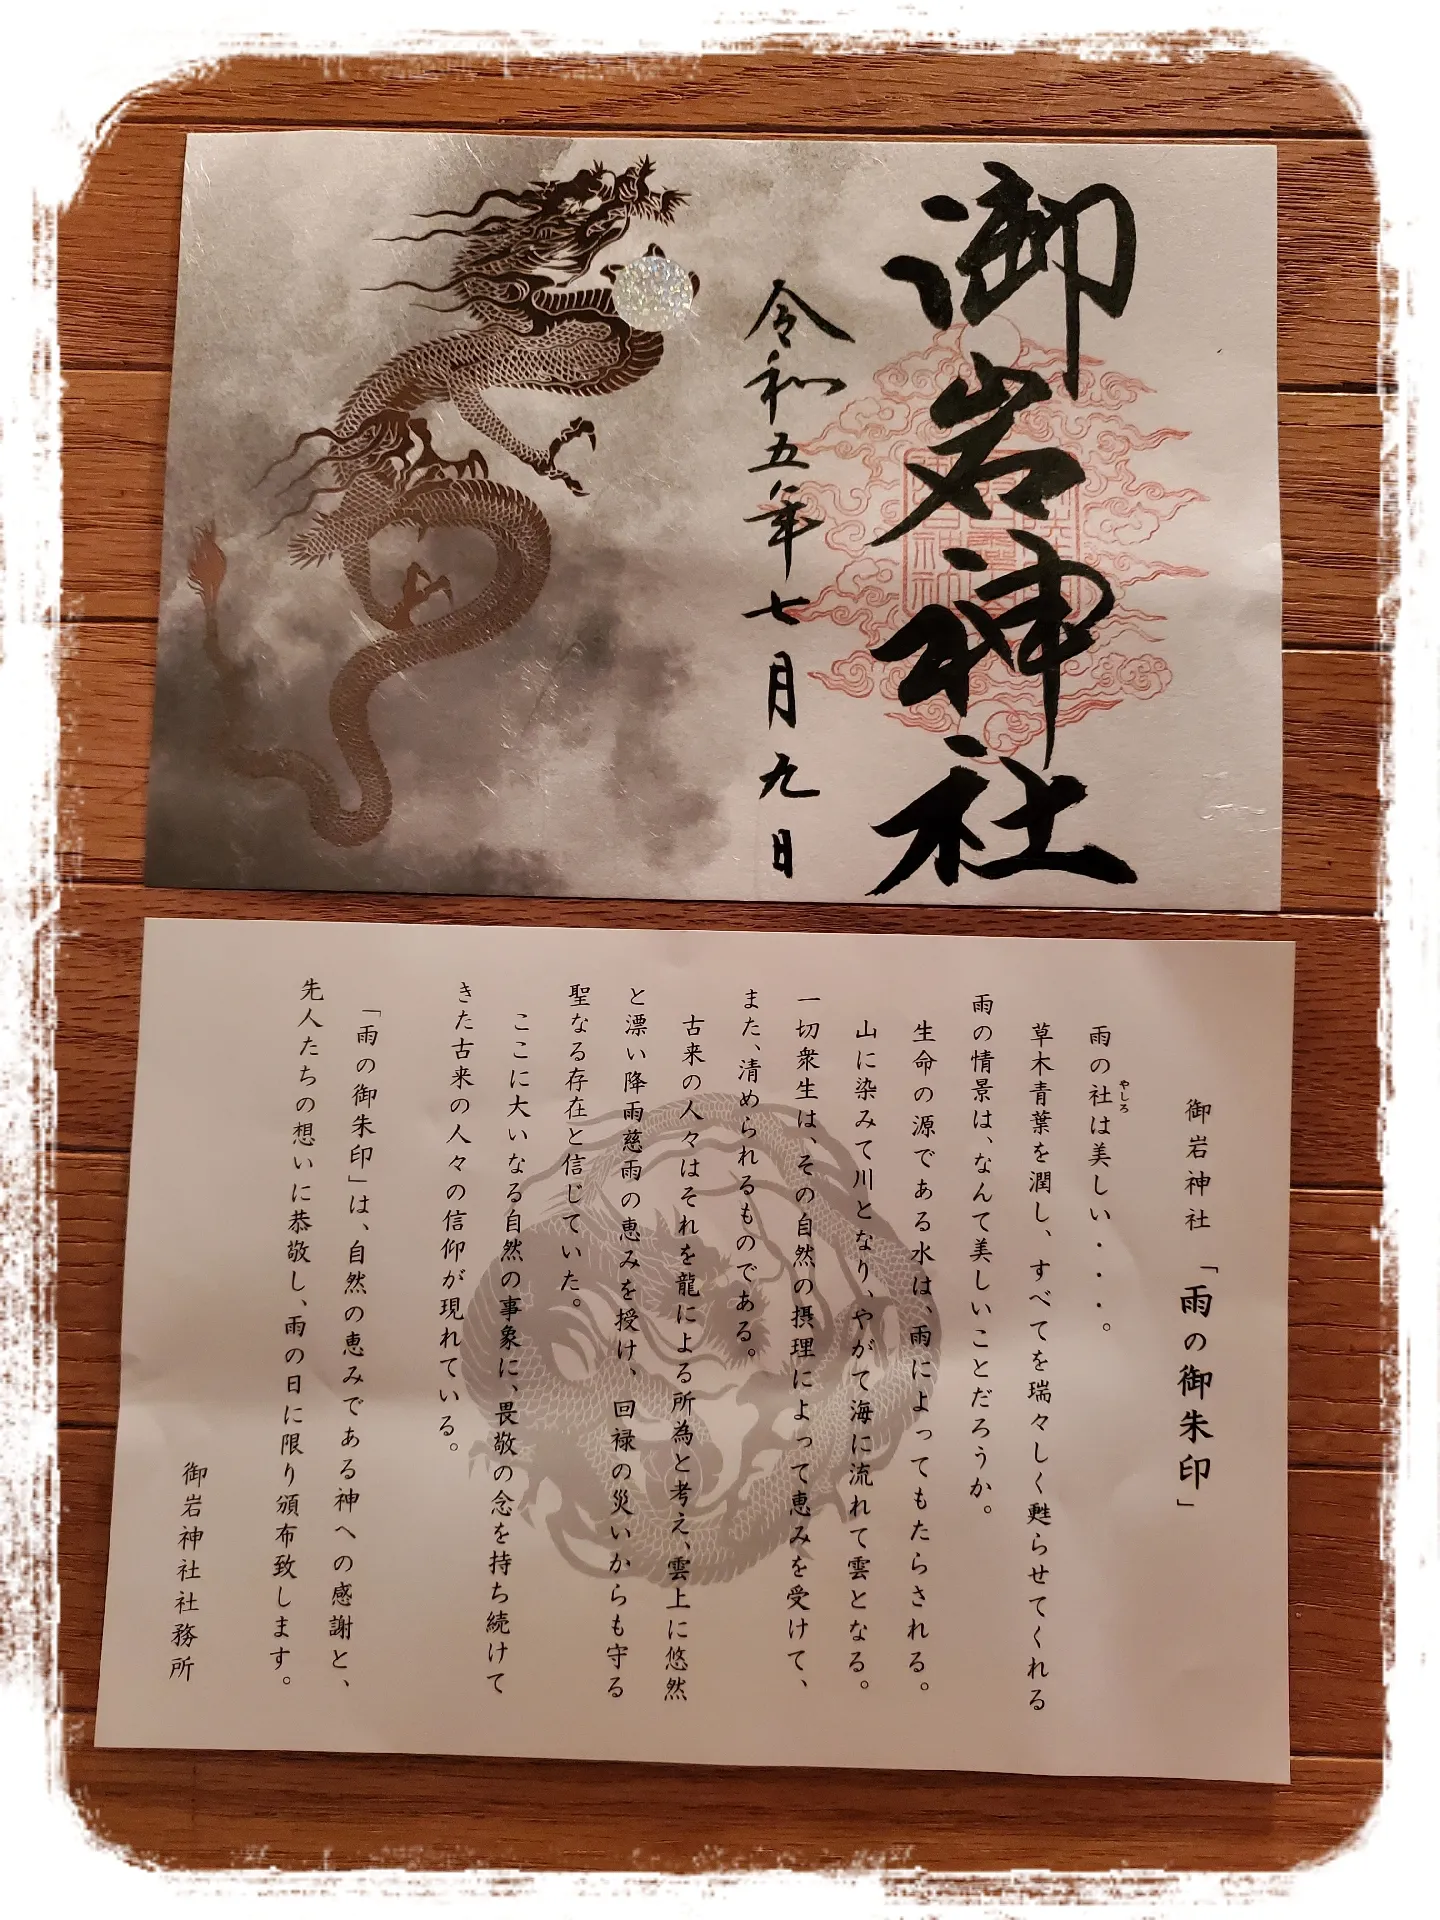 御岩神社
令和五年七月九日
御岩神社「雨の御朱印」
雨の社は美しい・・・。
やしろ
草木青葉を潤し、すべてを瑞々しく甦らせてくれる
雨の情景は、なんて美しいことだろうか。
生命の源である水は、雨によってもたらされる。
山に染みて川となり、やがて海に流れて雲となる。
一切衆生は、その自然の摂理によって恵みを受けて、
また、清められるものである。
古来の人々はそれを龍による所為と考え、雲上に悠然
と漂い降雨慈雨の恵みを授け、回禄の災いからも守る
聖なる存在と信じていた。
ここに大いなる自然の事象に、畏敬の念を持ち続けて
きた古来の人々の信仰が現れている。
「雨の御朱印」は、自然の恵みである神への感謝と、
先人たちの想いに恭敬し、雨の日に限り頒布致します。
御岩神社社務所